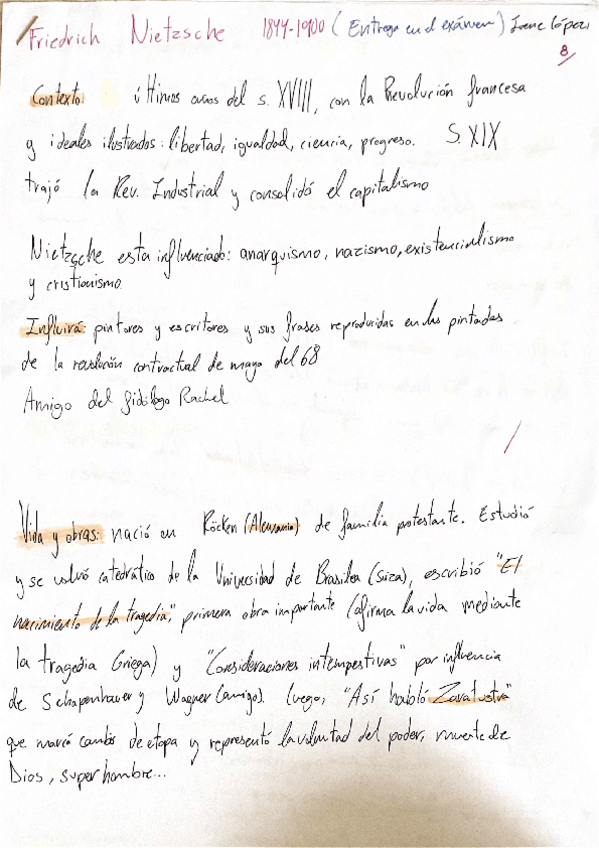 Friedrich Nietzsche 1844-1900 (Entrega en el exámen) Irene López
8
Contexto: últimos anos del s. XVIII, con la Revolución francesa
y ideales ilustrados: libertad, igualdad, ciencia, progreso. S. XIX
trajó la Rev. Industrial y consolidó el capitalismo
Nietzsche esta influenciado: anarquismo, nazismo, existencialismo
y cristianismo.
Influirá: pintores y escritores y sus frases reproducidas en las pintadas
de la revolución contractual de mayo del 68
Amigo del filólogo Rachel
Vida y obras: nació en Röcken (Alemania) de familia protestante. Estudió
y se volvó catedrático de la Universidad de Brasilea (Suiza), escribió "El
nacimiento de la tragedia", primera obra importante (afirma la vida mediante
la tragedia Griega) y "Consideraciones intempestivas" por influencia
de Schopenhauer y Wagner (amigo). Luego, "Así habló Zaratustra"
que marcó cambio de etapa y representó la voluntad del poder, muerte de
Dios, superhombre...